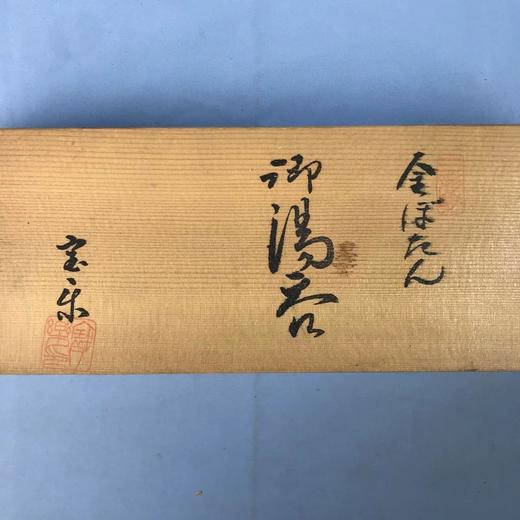 金ぼたん
御湯呑
宝楽